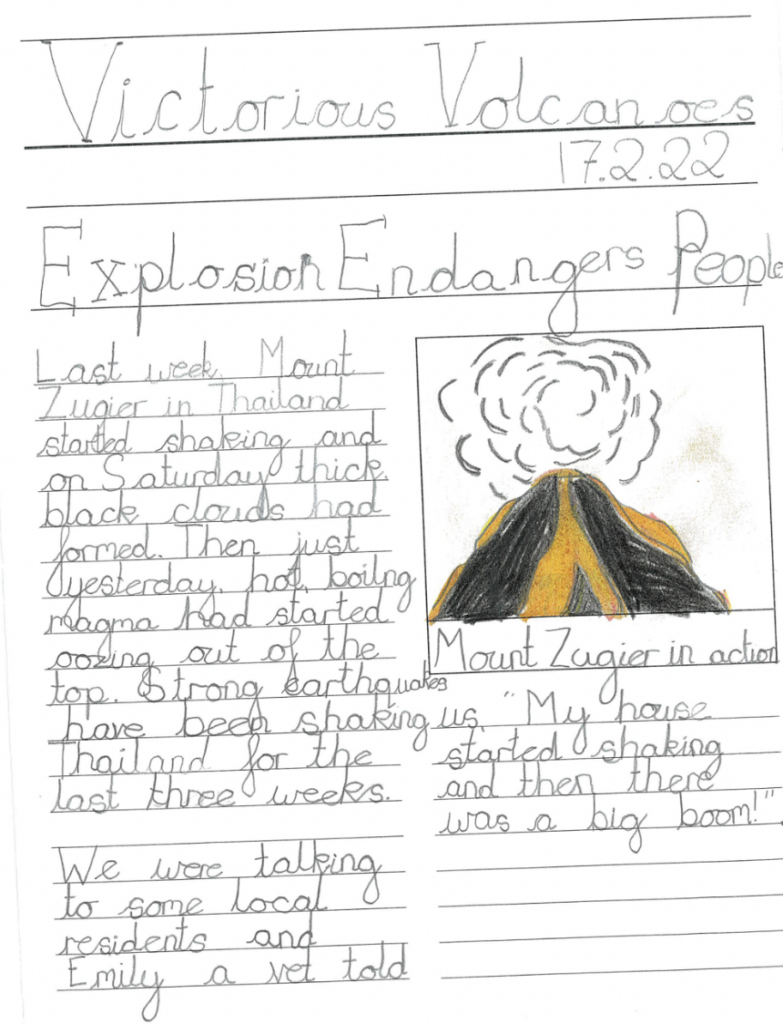 Victorious Volcanoes
17.2.22
Explosion Endangers People
Last week, Mount
Zugier in Thailand
started shaking and
on Saturday thick,
black clouds had
formed. Then just
yesterday, hot, boilng
magma had started
oozing out of the
top. Strong earthquakes
have been shaking
Thailand for the
last three weeks.
We were talking
to some local
residents and
Emily a vet told
Mount Zugier in action
us, "My house
started shaking
and then there
was a big boom!".